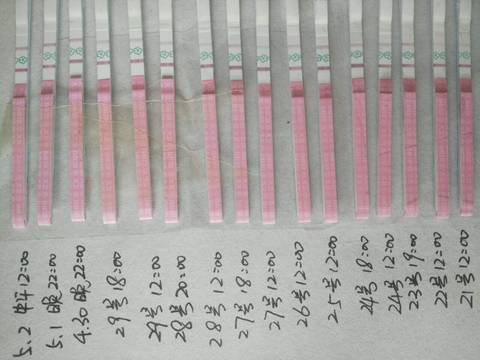 5.2 中午12:00
5.1 晚22:00
4.30 晚22:00
29号 18:00
29号 12:00
28号 20:00
28号 12:00
27号 18:00
27号 12:00
26号 12:00
25号 12:00
24号 18:00
24号 12:00
23号 19:00
22号 12:00
21号 12:00